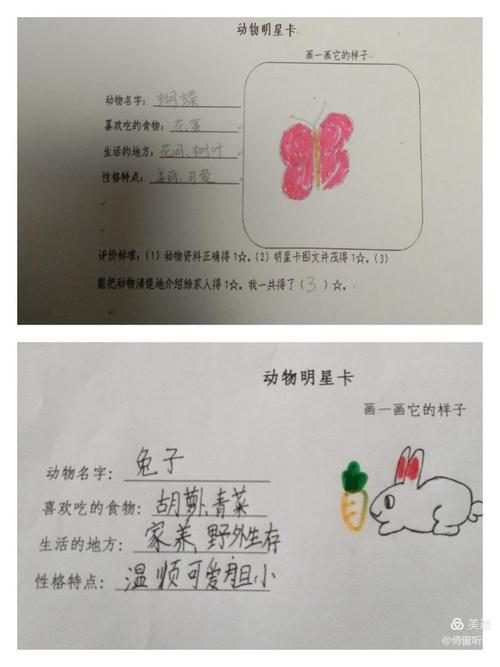 动物明星卡
画一画它的样子
动物名字：蝴蝶
喜欢吃的食物：花蜜
生活的地方：花间、树叶
性格特点：美丽、可爱
评价标准：（1）动物资料正确得1☆。（2）明星卡图文并茂得1☆。（3）
能把动物清楚地介绍给家人得1☆。我一共得了（3）☆。
动物明星卡
画一画它的样子
动物名字：兔子
喜欢吃的食物：胡萝卜青菜
生活的地方：家养、野外生存
性格特点：温顺可爱胆小
美颜
@倚窗听